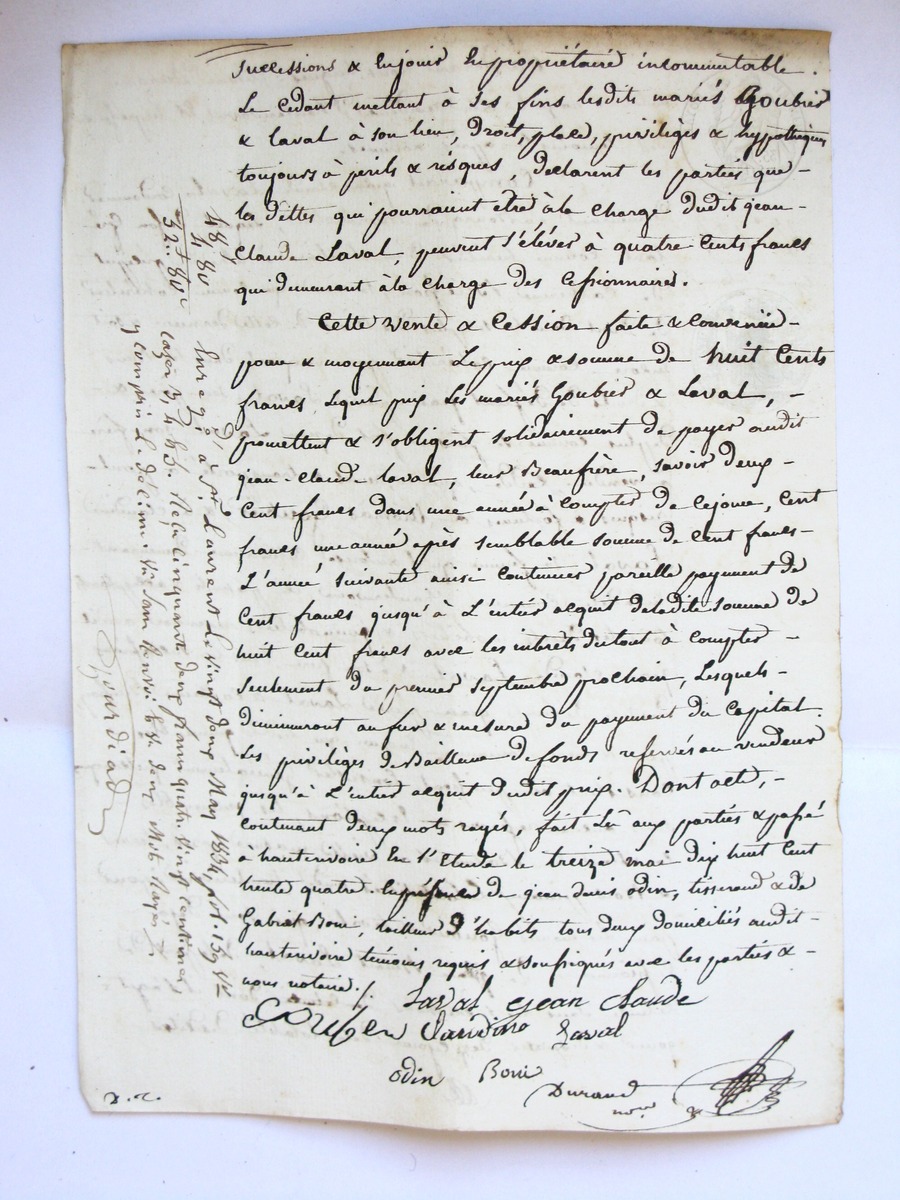 successions & en jouir en propriétaire incommutable.
Le cedant mettant à ses fins lesdits mariés Goubier
& laval à son lieu, droit, place, privilèges & hypothèques
toujours à périls & risques, declarent les parties que -
les dettes qui pourraient être à la charge dudit jean -
Claude Laval, peuvent s'éléver à quatre cents francs
qui demeurant à la charge des cessionnaires.
Cette vente & Cession faite & convenüe -
pour & moyennant Le prix & somme de huit Cents
francs lequel prix Les mariés Goubier & Laval, -
promettent & s'obligent solidairement de payer audit
jean-claude laval, leur Beaufrère, savoir deux -
Cent francs dans une année à compter de ce jour, Cent
francs une année après semblable somme de Cent francs -
L'année suivante ainsi Continuer pareille payement de
Cent francs jusqu'à L'entier acquit de ladite somme de
huit Cent francs avec les intérêts du tout à compter -
seulement du premier septembre prochain, Lesquels -
diminuront au fur & mesure du payement du Capital.
Les privilèges de Bailleur de fonds réservés au vendeur
jusqu'à L'entier acquit dudit prix. Dont acte, -
Contenant deux mots rayés, fait Lu aux parties & passé
à hauterivoire En l'Etude le treize mai dix huit Cent
trente quatre. En présence de jean denis odin, tisserand & de
Gabriel Boni, tailleur d'habits tous deux domiciliés audit -
hauterivoire témoins requis & soussignés avec les parties &-
nous notaire./.
Laval jean claude
Claudine Laval
odin Boni
Durand
nore
48 "
4 80
52. 80
Enregé à St Laurent le vingt deux May 1834, fol. 159 Vo
cases 3, 4 & 5. Reçu cinquante deux francs quatre vingt centimes
y compris le décime. Vo sans renvoi & deux Mots Rayés.